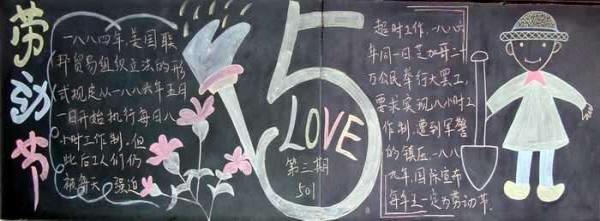 劳动节
一八八四年,美国联
邦贸易组织立法的形
式规定从一八八六年五月
一日开始执行每日八
小时工作制,但
此后工人们仍
被每天 强迫
5
LOVE
第二期
501
超时工作,一八八六
年同一日芝加哥二十
万公民举行大罢工,
要求实现八小时工
作制,遭到军警
的镇压,一八八
九年,国际宣布
每年五一定为劳动节.